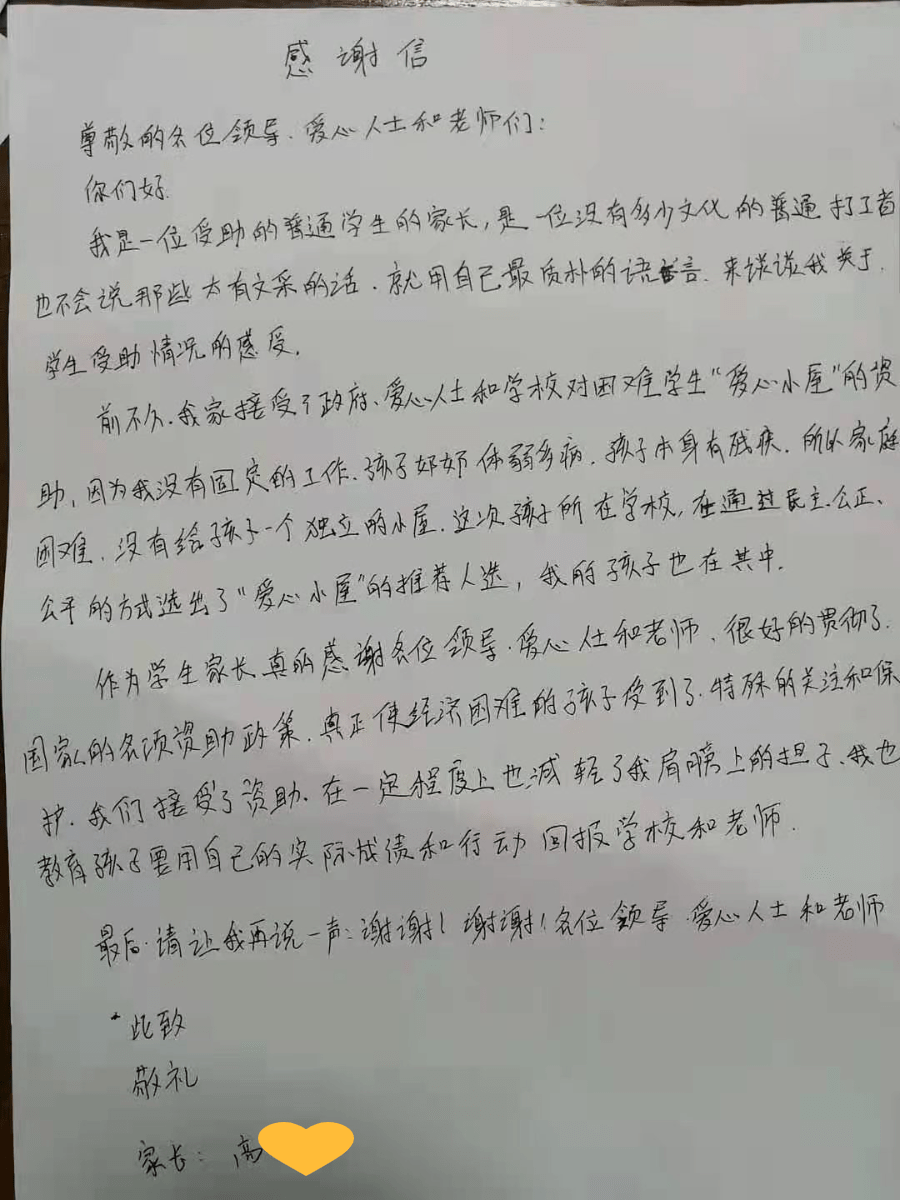 感谢信
尊敬的各位领导、爱心人士和老师们:
你们好.
我是一位受助的普通学生的家长,是一位没有多少文化的普通打工者
也不会说那些太有文采的话.就用自己最质朴的语言.来谈谈我关于.
学生受助情况的感受.
前不久.我家接受了政府、爱心人士和学校对困难学生“爱心小屋”的资
助,因为我没有固定的工作.孩子奶奶体弱多病.孩子本身有残疾.所以家庭
困难.没有给孩子一个独立的小屋.这次孩子所在学校,在通过民主.公正、
公平的方式选出了“爱心小屋”的推荐人选,我的孩子也在其中.
作为学生家长真的感谢各位领导.爱心人士和老师.很好的贯彻了.
国家的各项资助政策.真正使经济困难的孩子受到了.特殊的关注和保
护.我们接受了资助.在一定程度上也减轻了我肩膀上的担子、我也
教育孩子要用自己的实际成绩和行动回报学校和老师.
最后.请让我再说一声:谢谢!谢谢!各位领导.爱心人士和老师
此致
敬礼
家长:高